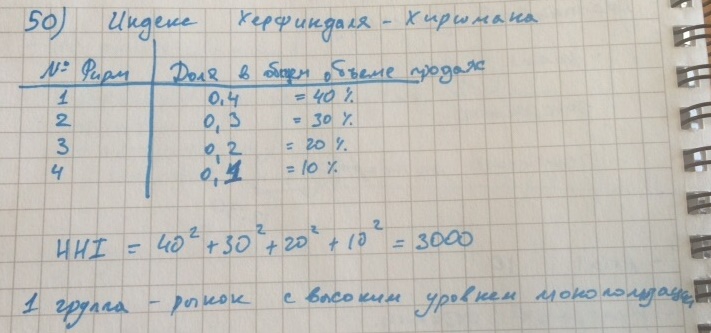 50) Индекс Херфиндаля - Хиршмана
№ Фирм Доля в общем объеме продаж
1 0,4 = 40 %
2 0,3 = 30 %
3 0,2 = 20 %
4 0,1 = 10 %
HHI = 40² + 30² + 20² + 10² = 3000
1 группа - рынок с высоким уровнем монополизации